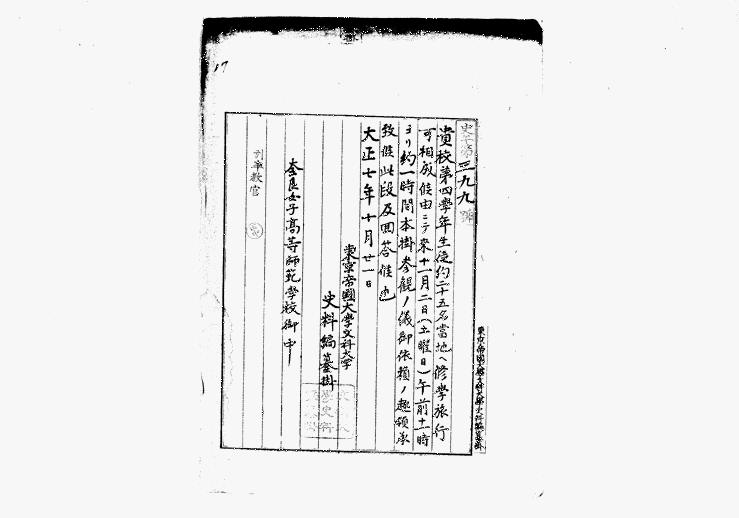 史子第三九九號
貴校第四學年生徒約二十五名當地ヘ修學旅行
可相成候由ニテ來十一月二日（土曜日）午前十一時
ヨリ約一時間本掛参觀ノ儀御依頼ノ趣領承
致候此段及回答候也
大正七年十月廿一日
東京帝國大學文科大學
史料編纂掛
奈良女子高等師範學校御中
東京帝國大學文科大學史料編纂掛